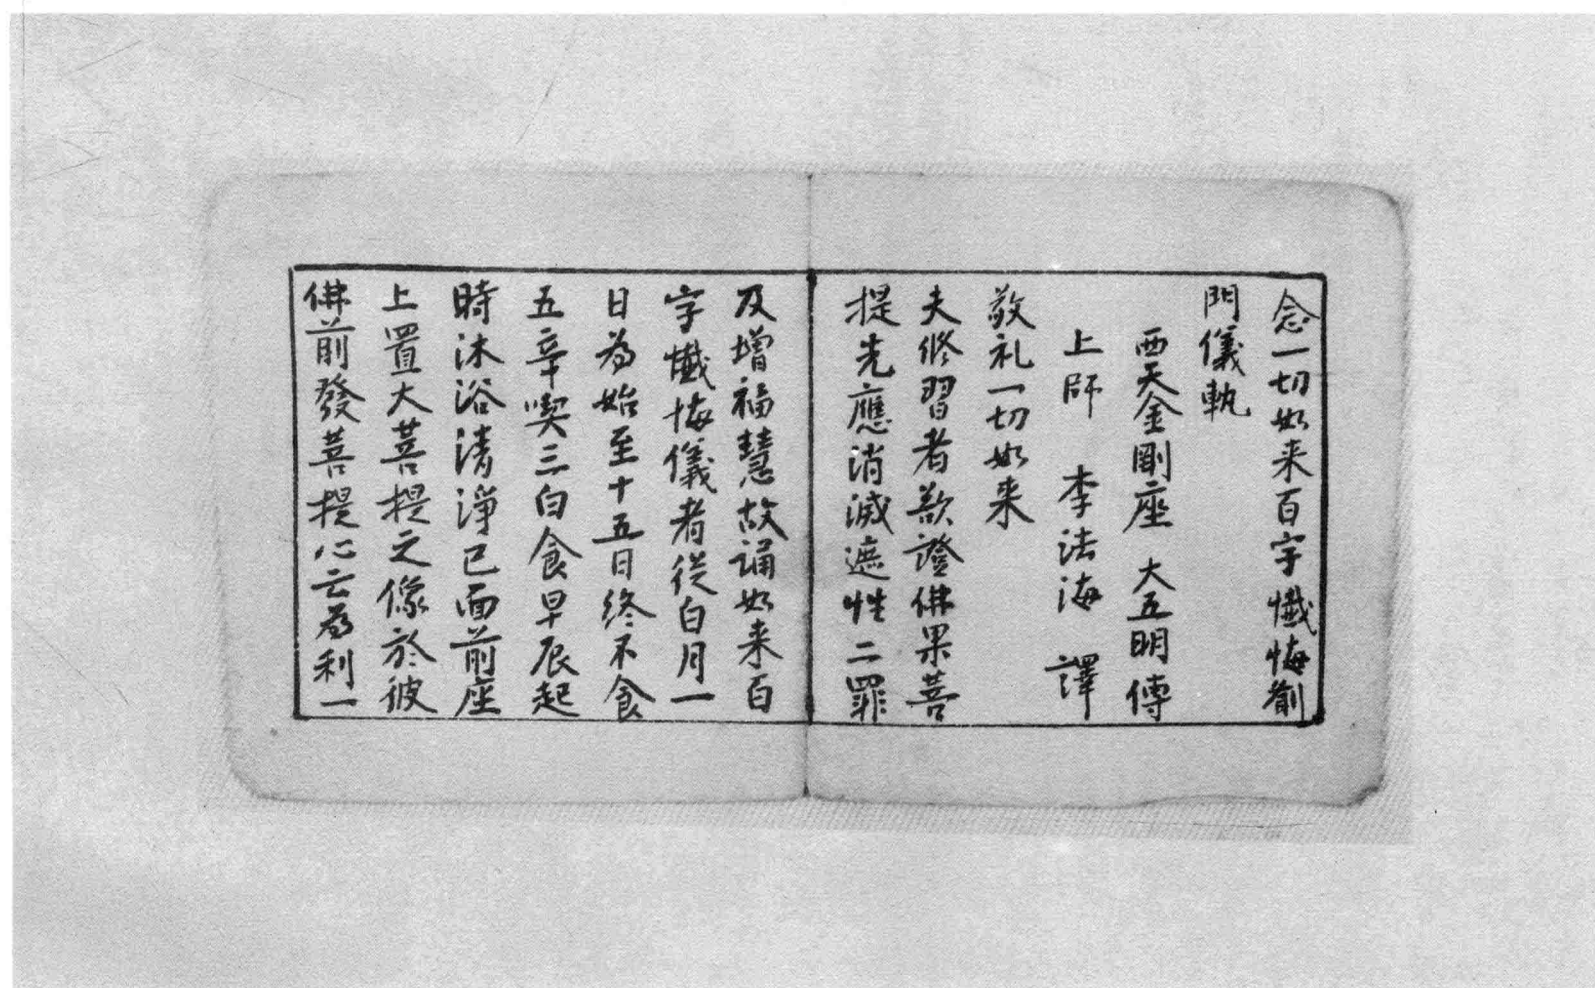 念一切如来百字懺悔剂
門儀軌
西天金剛座 大五明傳
上師 李法海 譯
敬礼一切如来
夫修習者欲證佛果菩
提先應消滅遮性二罪
及增福慧故誦如来百
字懺悔儀者從白月一
日為始至十五日終不食
五辛喫三白食早辰起
時沐浴清淨已面前座
上置大菩提之像於彼
佛前發菩提心云為利一